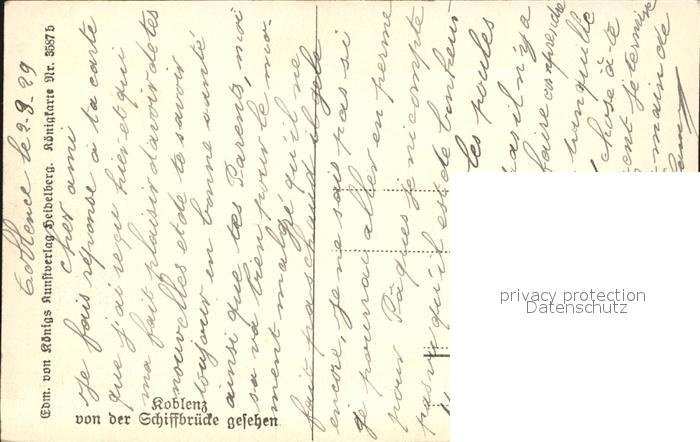 Coblence le 2-3-29
Cher ami
Je fais réponse à ta carte
que j'ai reçu hier et qui
ma fait plaisir d'avoir de tes
nouvelles et de te savoir
toujour en bonne santé
ainsi que tes Parents, moi
sa va bien pour le mo-
ment malgré qu'il ne
fait pas chaud il gèle
encore, Je ne sais pas si
Je pourrai aller en perme
pour Pâques Je n'compte
pas qu'il est de bonheur
les poules
pas il n'y a
faise comprendre
tranquille
chose à te
Je termine
main de
Edm. von Königs Kunstverlag, Heidelberg. Königkarte Nr. 3587b
Koblenz
von der Schiffbrücke gesehen
privacy protection
Datenschutz